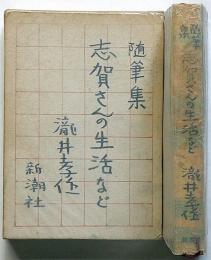 随筆集
志賀さんの生活など
瀧井孝作
新潮社
随筆集
志賀さんの生活など
瀧井孝作